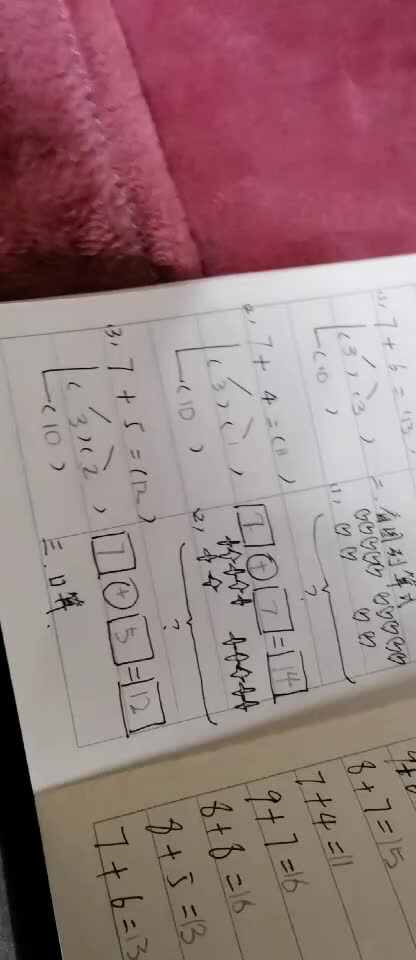 (1) 7 + 6 = (13)
(3) (3)
(10)
(2) 7 + 4 = (11)
(3) (1)
(10)
(3) 7 + 5 = (12)
(3) (2)
(10)
二.看图列算式
(1)
?
7 + 7 = 14
(2)
?
7 + 5 = 12
三.口算.
8 + 7 = 15
7 + 4 = 11
9 + 7 = 16
8 + 8 = 16
8 + 5 = 13
7 + 6 = 13